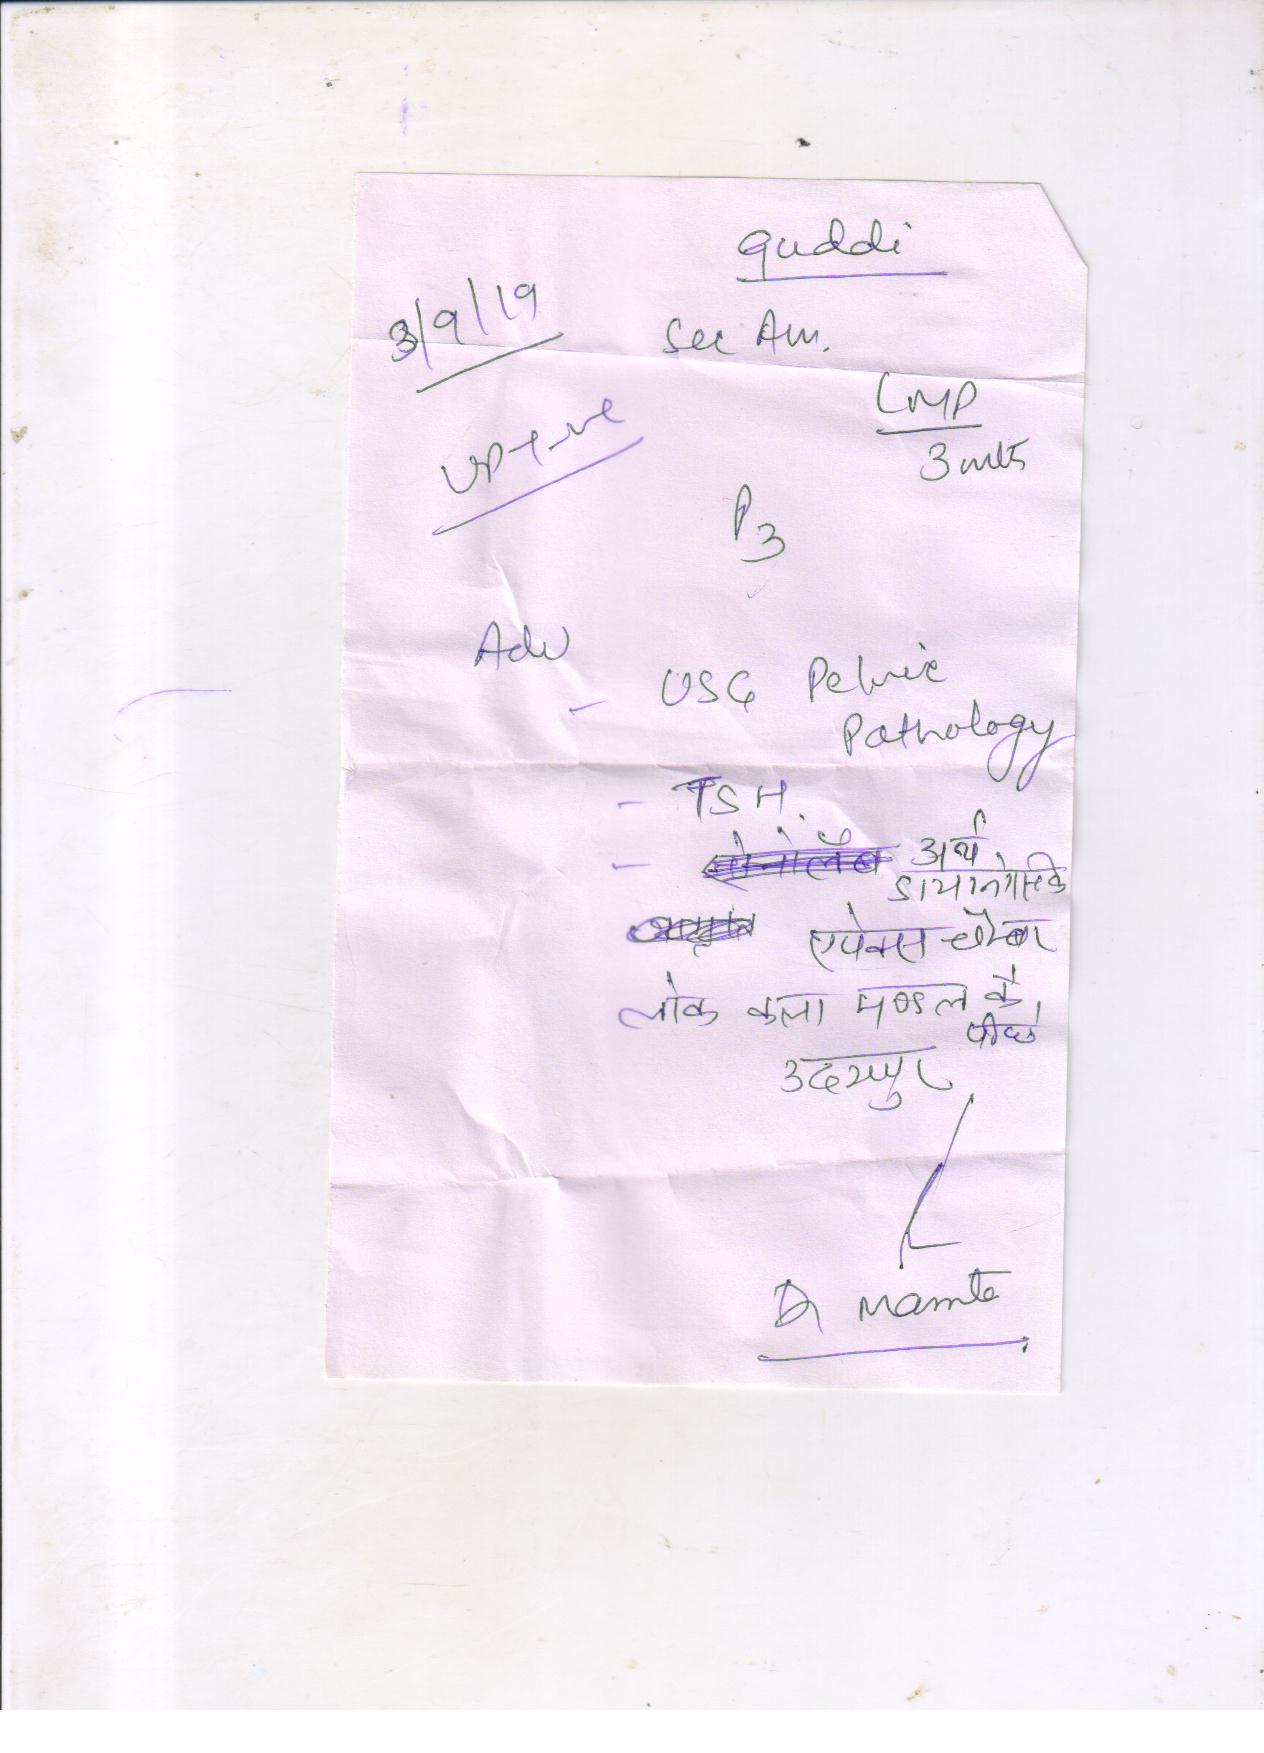 Guddi
3/9/19
Sec Am.
LMP
3 mts
UPT -ve
P3
Adv
- USG Pelvic
Pathology
- TSH.
- अर्थ
डायग्नोस्टिक
एपेक्स चैम्बर
लोक कला मण्डल के
पीछे
उदयपुर
Dr Mamta